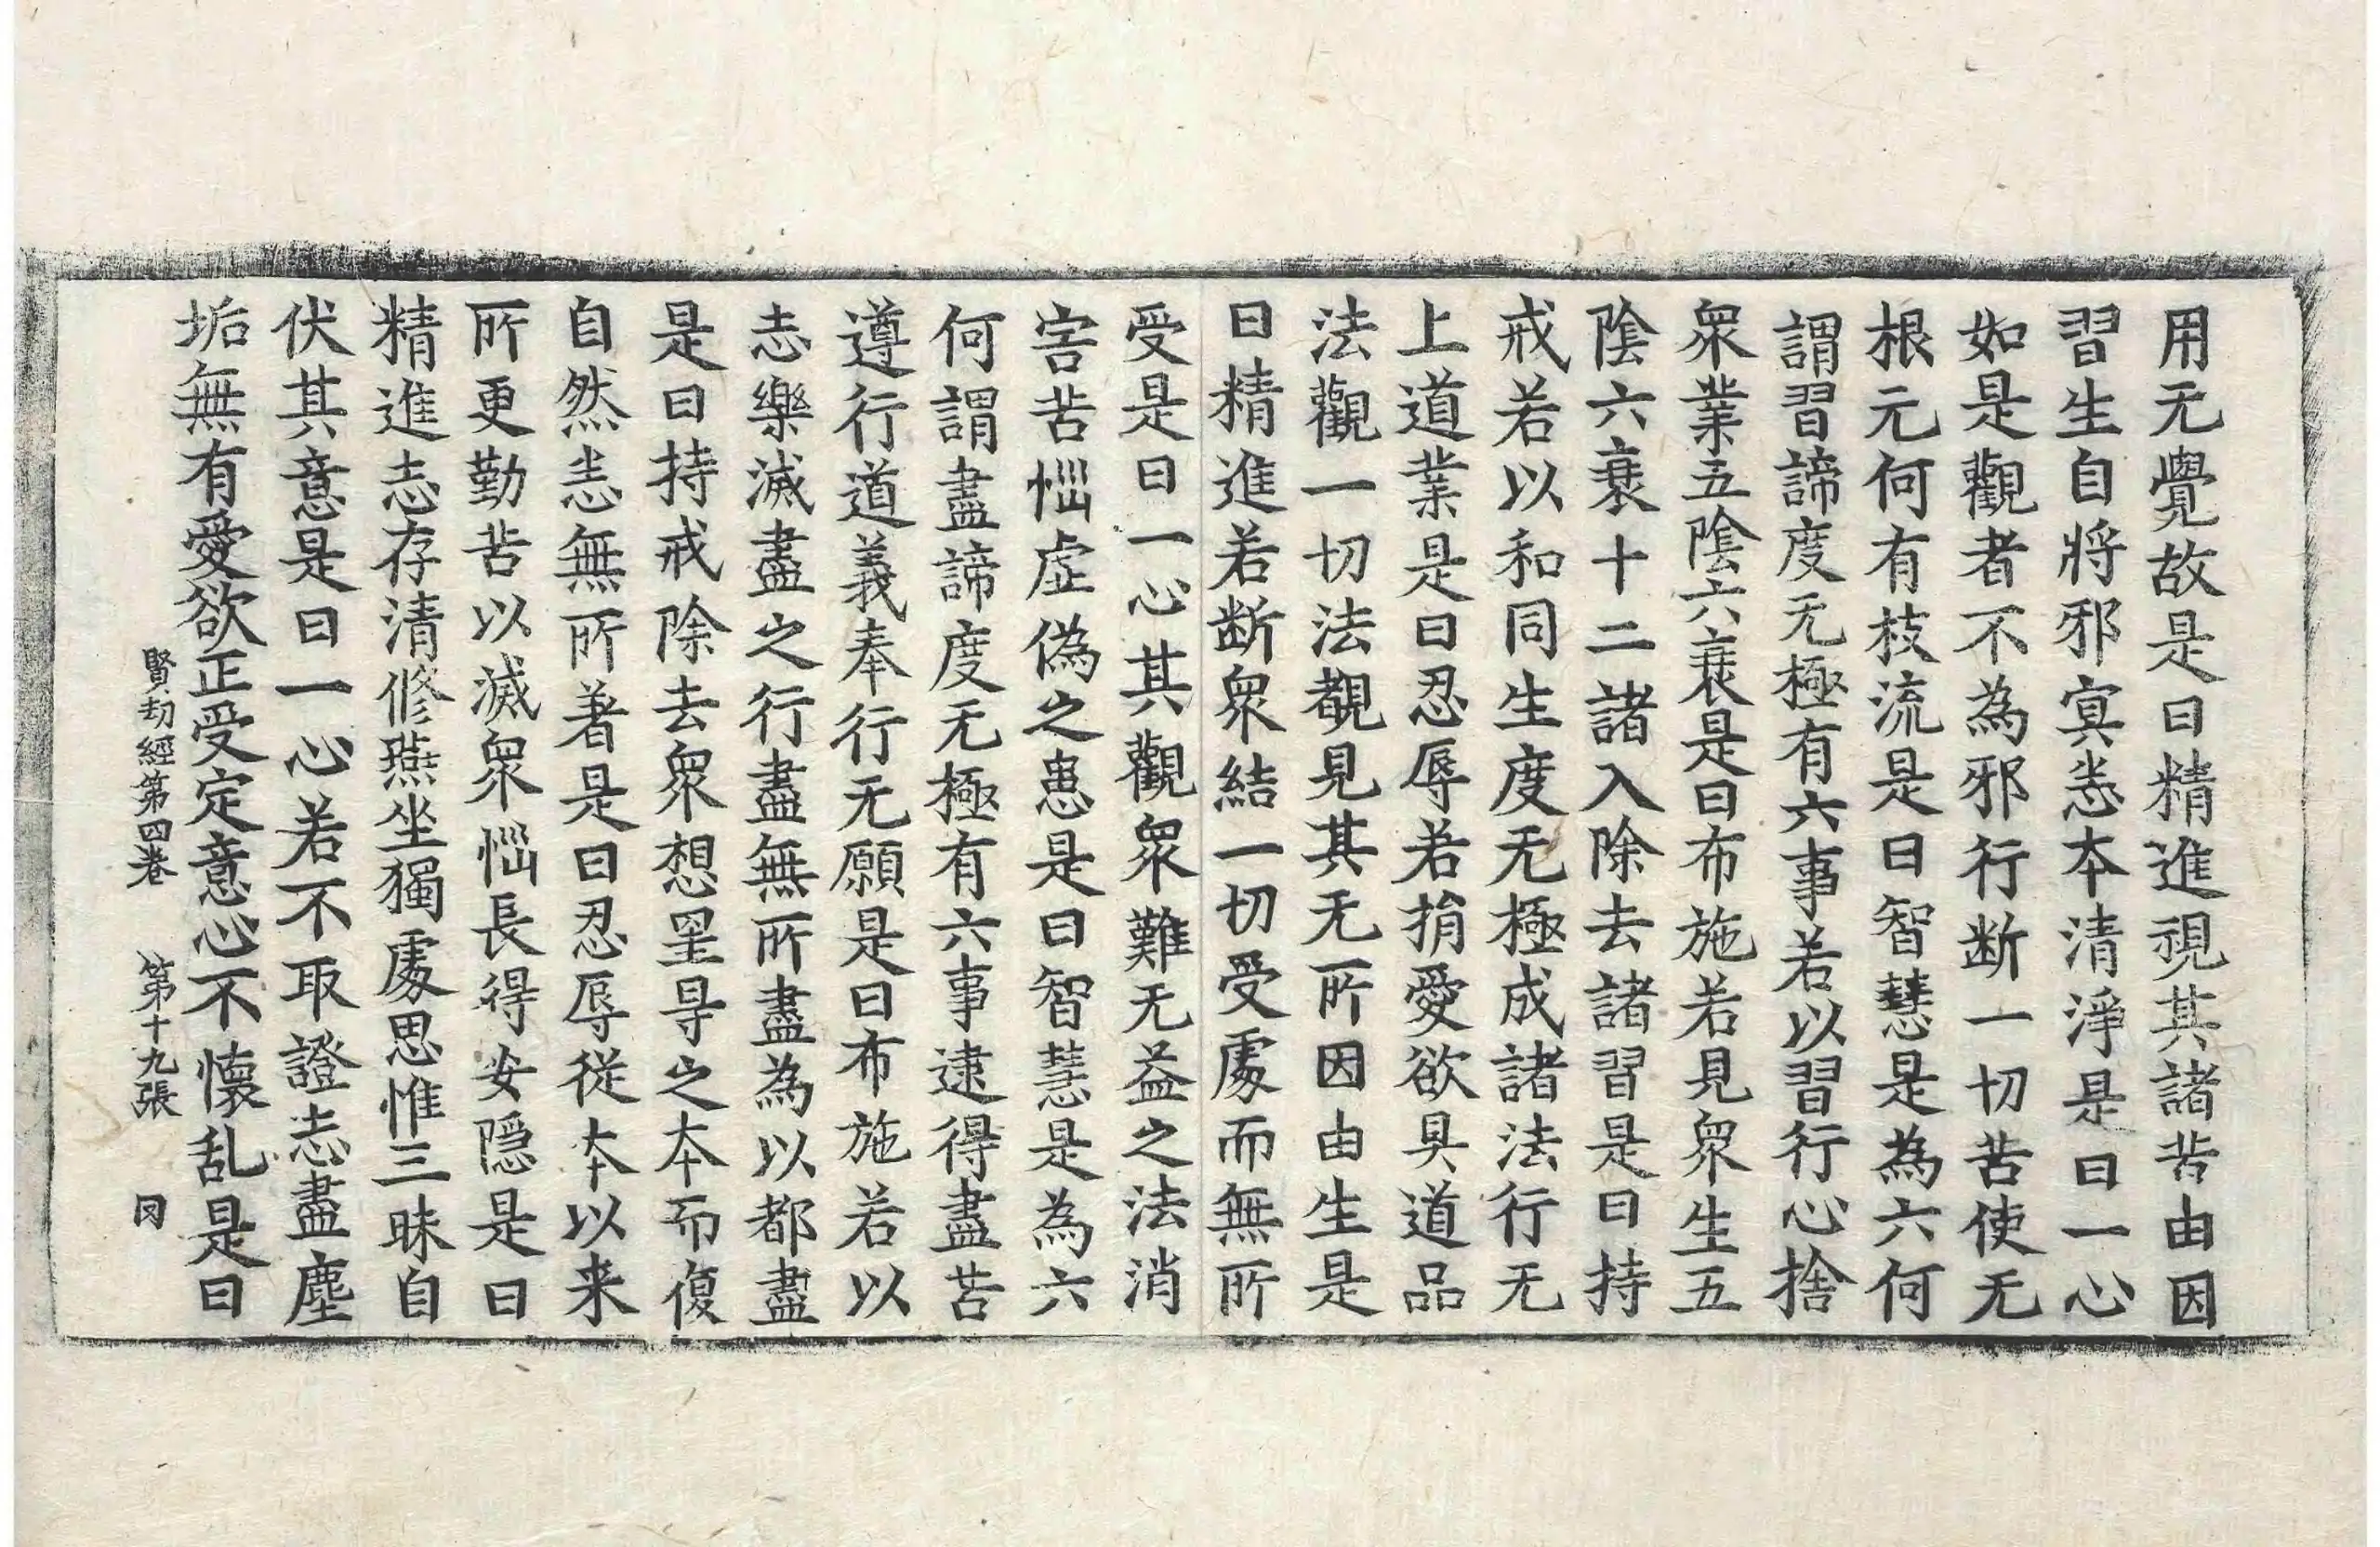 用无覺故是曰精進視其諸苦由因
習生自將邪冥恙本清淨是曰一心
如是觀者不為邪行断一切苦使无
根元何有枝流是曰智慧是為六何
謂習諦度无極有六事若以習行心捨
衆業五陰六衰是曰布施若見衆生五
陰六衰十二諸入除去諸習是曰持
戒若以和同生度无極成諸法行无
上道業是曰忍辱若捐愛欲具道品
法觀一切法覩見其无所因由生是
曰精進若断衆結一切受處而無所
受是曰一心其觀衆難无益之法消
害苦惱虛偽之患是曰智慧是為六
何謂盡諦度无極有六事逮得盡苦
遵行道義奉行无願是曰布施若以
志樂滅盡之行盡無所盡為以都盡
是曰持戒除去衆想罣导之本而復
自然恙無所著是曰忍辱從本以来
所更勤苦以滅衆惱長得安隱是曰
精進志存清修燕坐獨處思惟三昧自
伏其意是曰一心若不取證志盡塵
垢無有愛欲正受定意心不懷乱是曰
賢劫經第四卷 第十九張 同